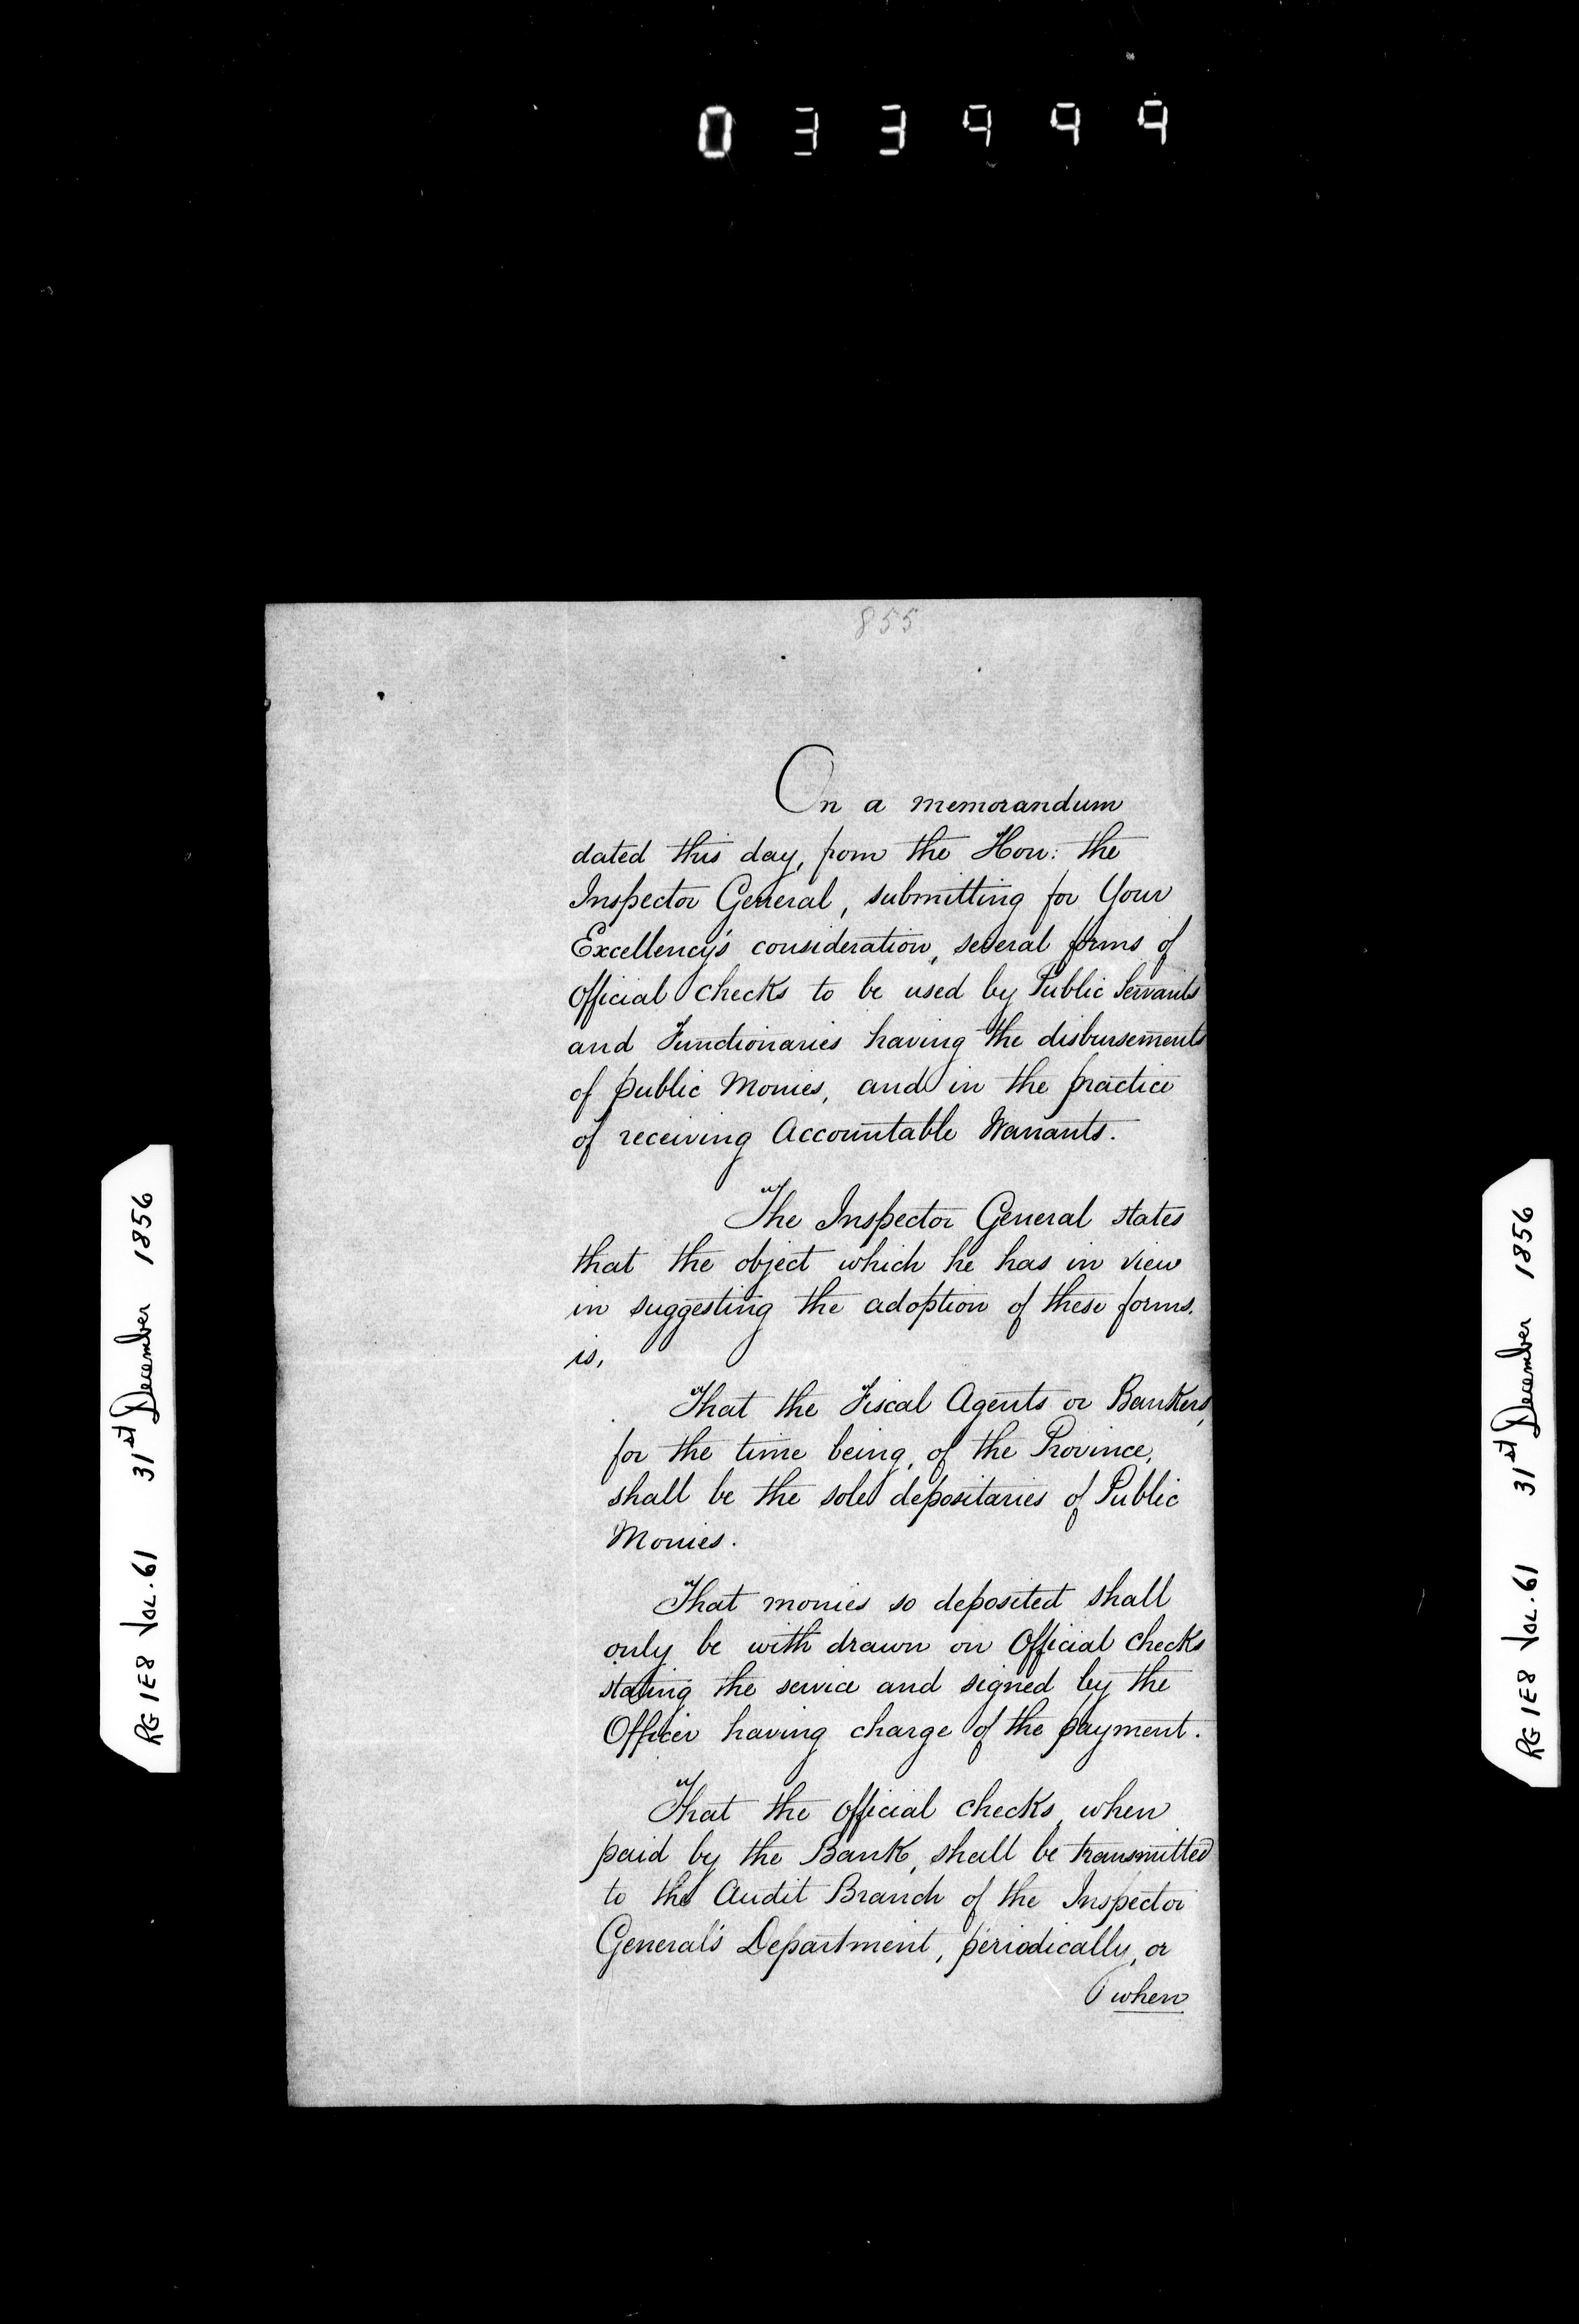 033999
855
On a memorandum
dated this day, from the Hon: the
Inspector General, submitting for Your
Excellency's consideration, several forms of
Official Checks to be used by Public Servants
and Functionaries having the disbursements
of public Monies, and in the practice
of receiving Accountable Warrants.
The Inspector General states
that the object which he has in view
in suggesting the adoption of these forms.
is,
That the Fiscal Agents or Bankers,
for the time being, of the Province,
shall be the sole depositaries of Public
Monies.
That monies so deposited shall
only be with drawn on Official Checks
stating the service and signed by the
Officer having charge of the payment.
That the Official Checks, when
paid by the Bank, shall be transmitted
to the Audit Branch of the Inspector
General's Department, periodically, or
when
RG 1E8 Vol. 61 31st December 1856
RG 1E8 Vol. 61 31st December 1856